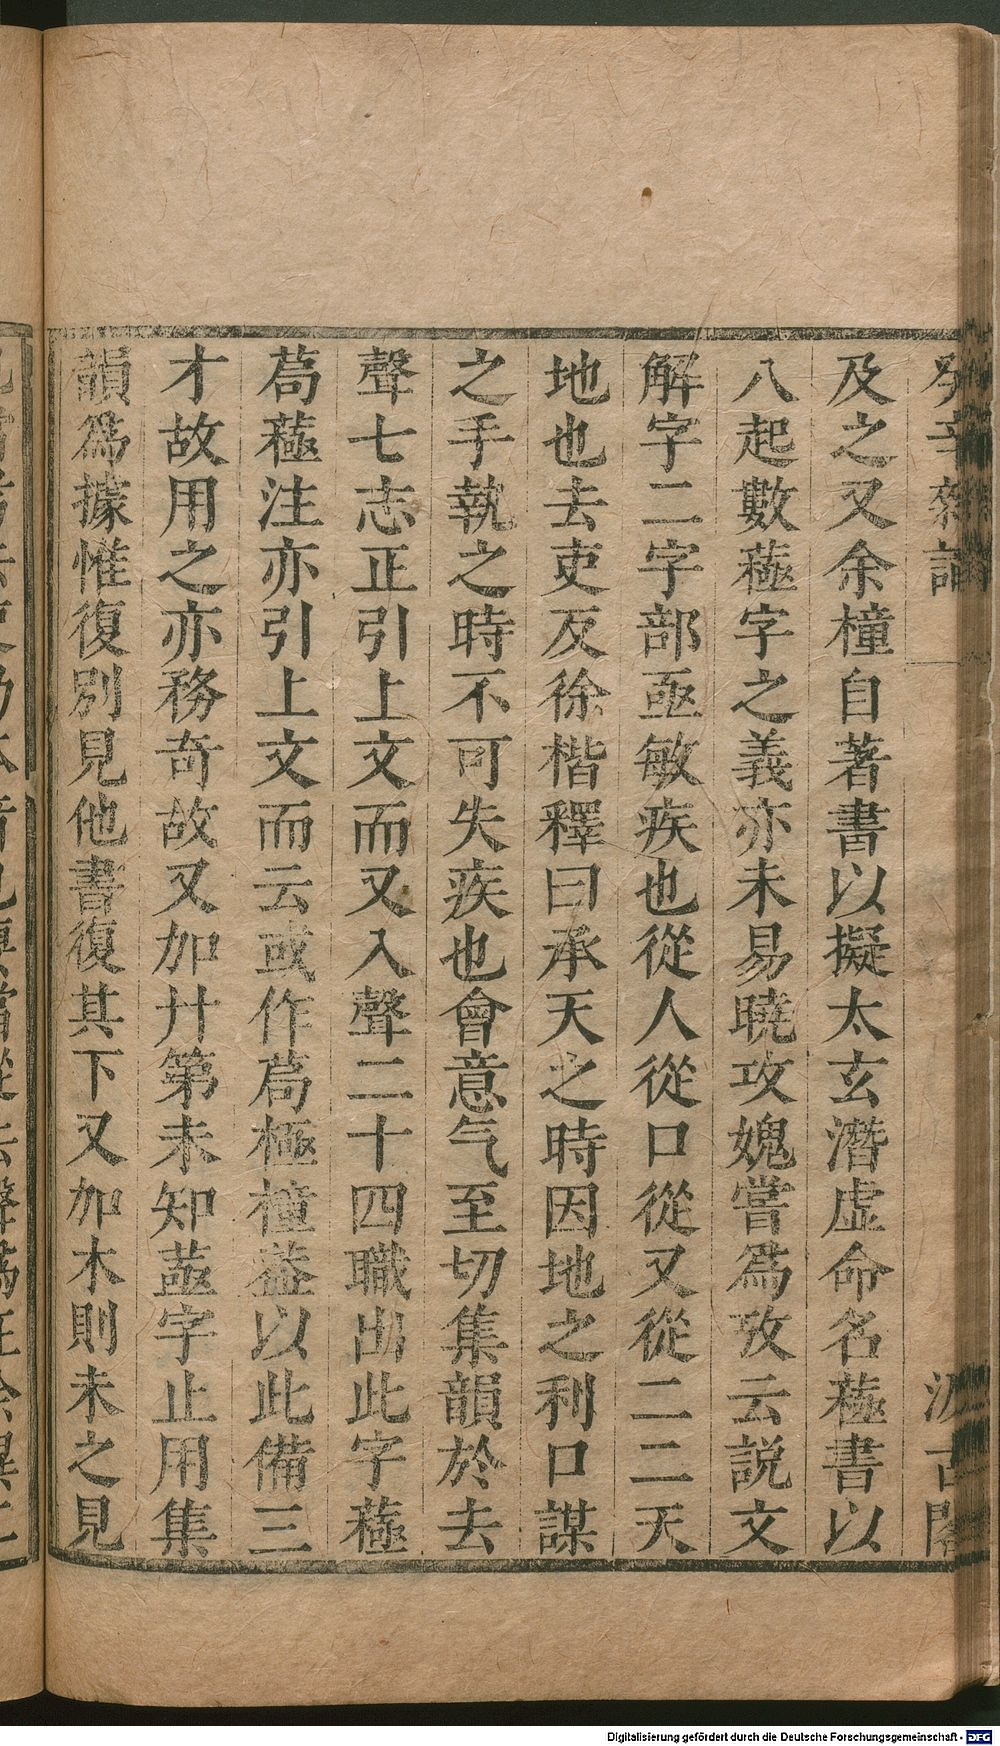 癸辛雜識
汲古閣
及之又余橦自著書以擬太玄潛虛命名䕬書以
八起數䕬字之義亦未易曉攻媿嘗爲攷云説文
解字二字部亟敏疾也從人從口從又從二二天
地也去吏反徐楷釋曰承天之時因地之利口謀
之手執之時不可失疾也會意气至切集韻於去
聲七志正引上文而又入聲二十四職出此字䕬
苟䕬注亦引上文而云或作苟極橦葢以此備三
才故用之亦務奇故又加廾第未知𦯬字止用集
韻爲據惟復別見他書復其下又加木則未之見